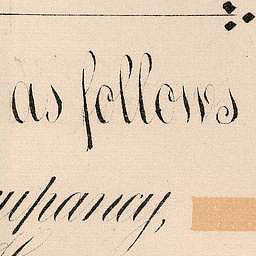 as follows
mpancy,